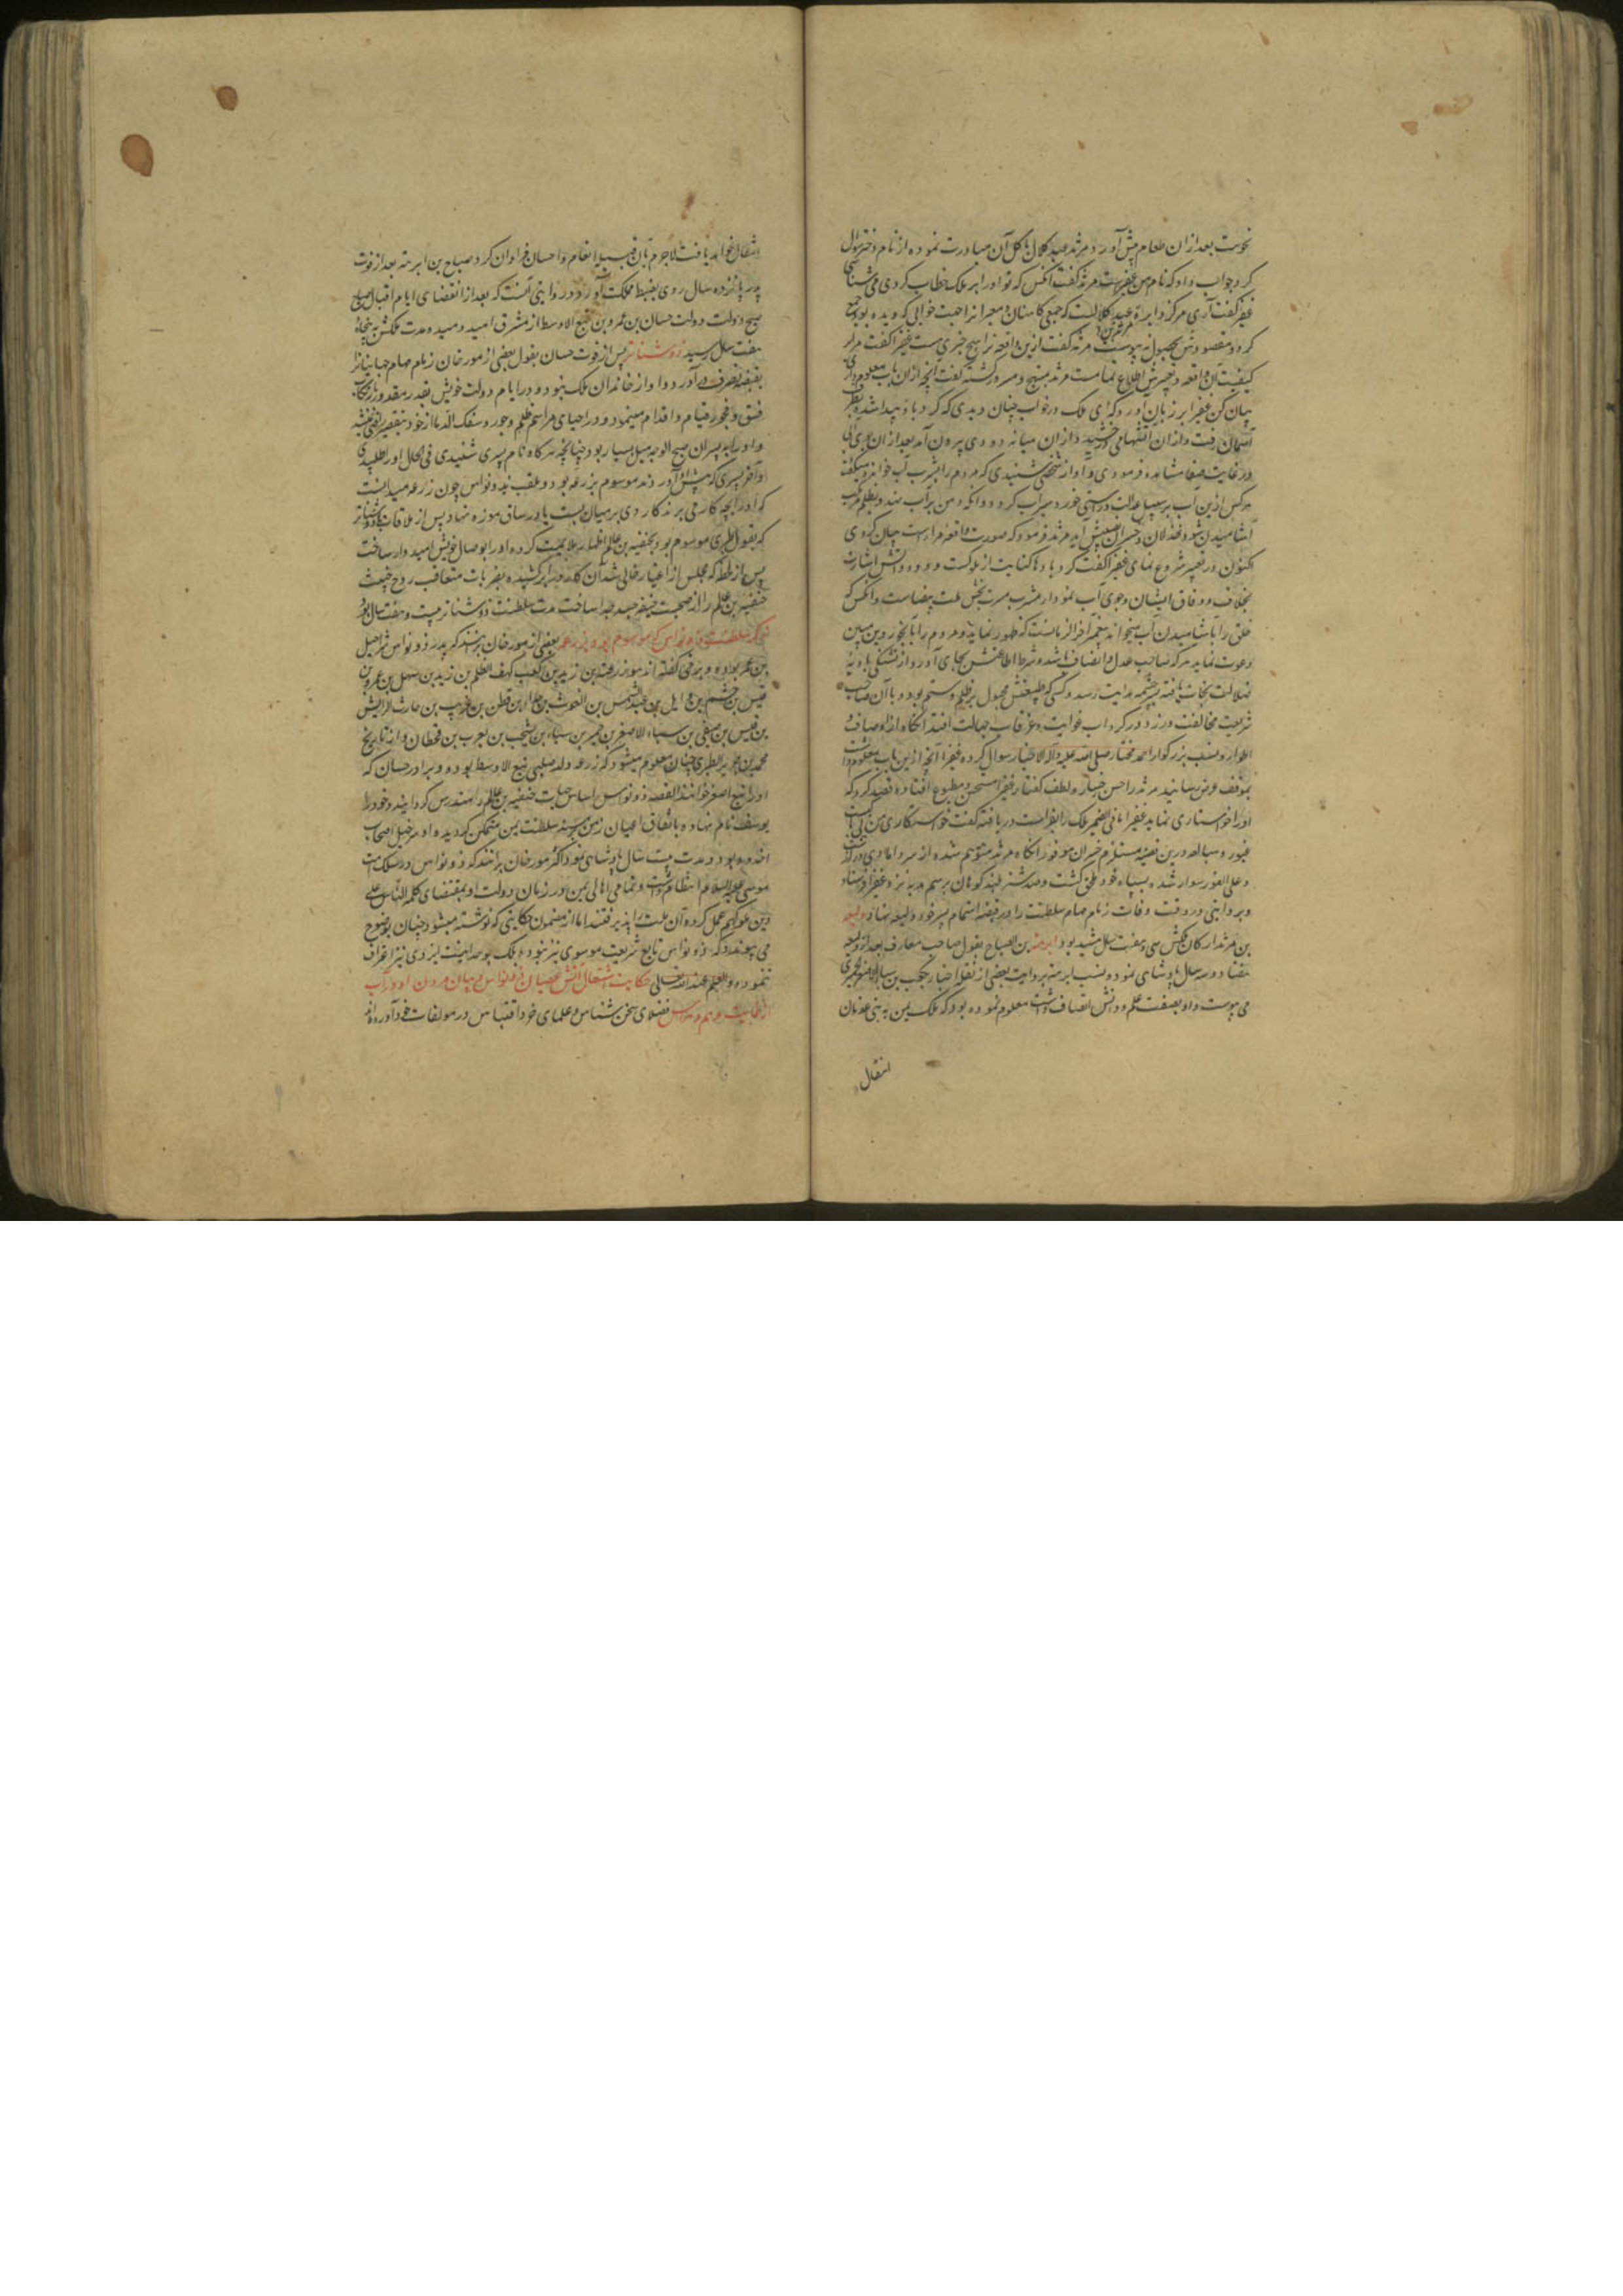 نخوست بعد از ان طعام پیش آورد و مرثد عبد کلال باکل آن مبادرت نموده از نام دختر سوال
کرد جواب داد که نام من عفیراست مرثد گفت آنکس که تو او را بر ملک خطاب کردی می شناسی
عفیرا گفت آری مرثد بن عبد کلالست که جمعی کاهنان و معبرانرا جهت خوابی که دیده بود جمع
کرد و مقصودش بحصول نه پیوست مرثد گفت ازین واقعه ترا هیچ خبری هست عفیرا گفت مرا بر
کیفیت آن واقعه و تعبیرش اطلاع تمامست مرثد مبتهج و مسرور گشته گفت آنچه ازان باب معلوم داری
بیان کن عفیرا بر زبان اورد که ای ملک در خواب چنان دیدی که گردبادی پیدا شده بطرف
آسمان رفت و ازان آتشها می درخشید و ازان میانه دودی بیرون آمد بعد ازان جوی آبی
در غایت صفا مشاهده فرمودی و آواز شخصی شنیدی که مردم را بشرب آب خوانده میگفت
هرکس ازین آب بر سبیل عدالت و راستی خورد سیراب گردد و انکه
آشامیدن شود خذلان و خسران پیش آید مرثد فرمود که صورت واقعه مرا راست بیان کردی
اکنون در تعبیر شروع نمای عفیرا گفت گردبادها کنایت از ملوکست و دود و آتش اشارت
بخلاف و وفاق ایشان و جوی آب نمودار مشرب مسرت بخش ملت بیضاست و آنکس که
خلق را بآشامیدن آب میخواند پیغمبر آخر الزمانست که ظهور نماید و مردم را بآبخور دین مبین
دعوت نماید هرکه صاحب عدل و انصاف باشد و شرط اطاعتش بجای آورد از تشنگی بادیه
ضلالت نجات یافته بسرچشمه هدایت رسد و کسی که طبیعتش مجبول بر ظلم و ستم بود و با آن صاحب
شریعت مخالفت ورزد در گرداب غوایت و غرقاب جهالت افتد آنگاه از اوصاف و
اطوار و نسب بزرگوار احمد مختار صلی الله علیه و آله الاخیار سوال کرده عفیرا آنچه ازین باب معلوم داشت
بموقف عرض رسانید مرثد را حسن رخسار و لطف گفتار عفیرا مستحسن و مطبوع افتاده قصد کرد که
او را خواستاری نماید عفیرا ما فی الضمیر ملک را بفراست دریافته گفت خواستکاری من
غیور و مبالغه درین قضیه مستلزم خسران موفور آنگاه مرثد متوهم شده از سر دامادی درگذشت
و علی الفور سوار شده بسپاه خود ملحق گشت و صد شتر بلند کوهان برسم هدیه نزد عفیرا فرستاد
و بروایتی در وقت وفات زمام مهام سلطنت را در قبضه اهتمام پسر خود ولیعه نهاد ولیعه
بن مرثد ارکان ملکش سی و هفت سال مشید بود ابرهه بن الصباح بقول صاحب معارف بعد از ولیعه
هفتاد و سه سال پادشاهی نموده و نسب ابرهه بروایت بعضی از نقله اخبار بکعب بن سبا الاصغر الحمیری
می پیوست و او بصفت علم و دانش اتصاف داشت معلوم نموده بود که ملک یمن به بنی عدنان
انتقال
انتقال خواهد یافت لاجرم بآن قبیله انعام و احسان فراوان کرد صباح بن ابرهه بعد از فوت
پدر پانزده سال روی بضبط مملکت آورد و در روایتی آنست که بعد از انقضای ایام اقبال صباح
صبح دولت حسان بن عمرو بن تبع الاوسط از مشرق امید دمید و مدت ملکش به پنجاه
هفت سال رسید ذوشناتر پس از فوت حسان بقول بعضی از مورخان زمام مهام جهانبانی را
بقبضه تصرف در آورد و او از خاندان ملک نبود و در ایام دولت خویش بقدر مقدور بارتکاب
فسق و فجور قیام و اقدام مینمود و در احیای مراسم ظلم و جور و سفک الدما از خود بتقصیر راضی نمیشد
و او را به پسران صبیح الوجه میل بسیار بود چنانچه هرگاه نام پسری شنیدی فی الحال او را طلبیدی
و آخر پسری که پیش او آوردند موسوم بزرعه بود و ملقب بذونواس چون زرعه میدانست
که او را بچه کار می برند کاردی بر میان بست یا در ساق موزه نهاد و پس از ملاقات ذوشناتر
که بقول طبری موسوم بود بحنفیه بن عالم اظهار ملایمت کرده او را بوصال خویش امیدوار ساخت
پس از لحظه که مجلس از اغیار خالی شد آن کارد را برکشیده بضربات متعاقب روح خبیث
حنفیه بن عالم را از صحبت جیفه جسد جدا ساخت مدت سلطنت ذوشناتر بیست و هفت سال بود
ذکر سلطنت ذونواس که موسوم بود بزرعه بعضی از مورخان برینند که پدر ذونواس شراحیل
بن عمرو بود و برخی گفته اند هو زرعه بن زید بن کعب کهف الظلم بن زید بن سهل بن عمرو بن
قیس بن جشم بن وایل بن عبدالشمس بن الغوث بن جدار بن قطن بن عریب بن حارث الرایش
بن قیس بن صیفی بن سباء الاصغر بن حمیر بن سباء بن یشجب بن یعرب بن قحطان و از تاریخ
محمد بن جریر الطبری چنان معلوم میشود که زرعه ولد صلبی تبع الاوسط بوده و برادر حسان که
او را تبع اصغر خوانند القصه ذونواس اساس حیات حنفیه بن عالم را مندرس گردانید و خود را
یوسف نام نهاده باتفاق اعیان زمن بر مسند سلطنت یمن متمکن گردیده او سرخیل اصحاب
اخدود بود و مدت بیست سال پادشاهی نمود اکثر مورخان برانند که ذونواس در سلک امت
موسی علیه السلام انتظام داشت و تمامی اهالی یمن در زمان دولت او بمقتضای کلمه الناس علی
دین ملوکهم عمل کرده آن ملت را پذیرفتند اما از مضمون حکایتی که نوشته میشود چنان بوضوح
می پیوندد که ذونواس تابع شریعت موسوی نیز نبوده بلکه بوحدانیت ایزدی نیز اعتراف
ننموده والعلم عند الله تعالی حکایت اشتعال آتش عصیان ذونواس و بیان مردن او در آب
فضلای سخن شناس و علمای خرد اقتباس در مولفات خود آورده اند